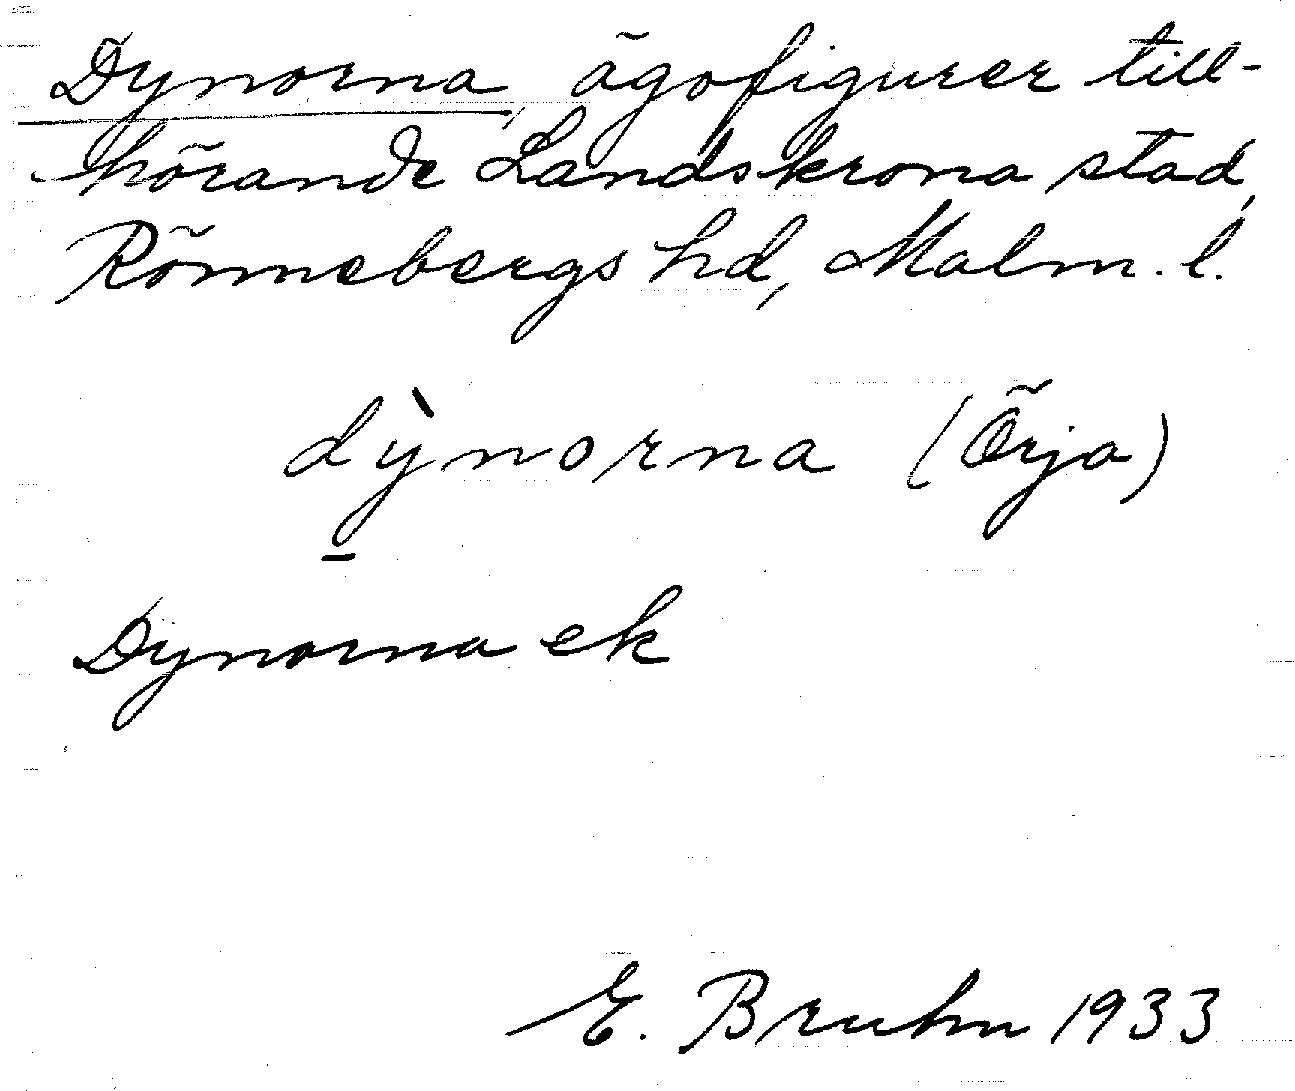 Dynorna, ägofigurer till-
hörande Landskrona stad,
Rönnebergs hd, Malm. l.
dỳnorna (Örja)
Dynorna ek
E. Bruhn 1933